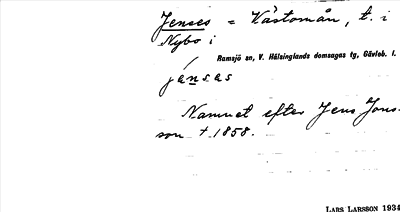 Jenses = Västomån, t. i
Nybo i
Ramsjö sn, V. Hälsinglands domsagas tg, Gävleb. l.
jánsas
Namnet efter Jens Jons-
son † 1858.
LARS LARSSON 1934